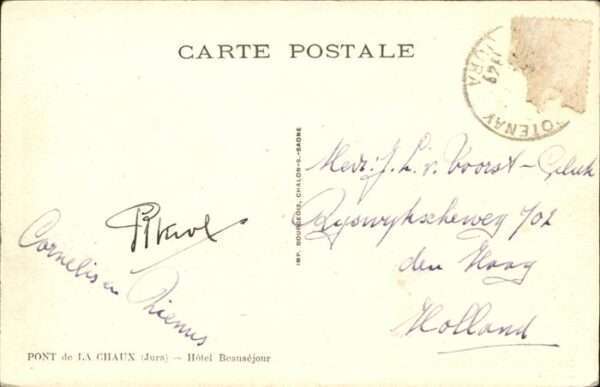 CARTE POSTALE
JURA
OTENAY
IMP. BOURGEOIS, CHALON-S.-SAONE
Mevr: J. L. v. Voorst-
Ryswykscheweg 702
den Haag
Holland
Cornelis en
PONT de LA CHAUX (Jura) — Hôtel Beauséjour